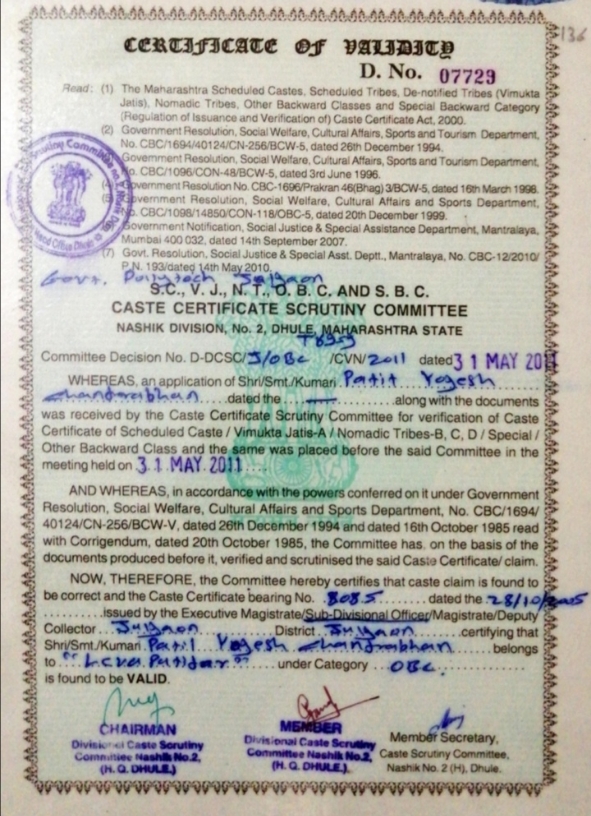 136
CERTIFICATE OF VALIDITY
D. No. 07729
Read: (1) The Maharashtra Scheduled Castes, Scheduled Tribes, De-notified Tribes (Vimukta
Jatis), Nomadic Tribes, Other Backward Classes and Special Backward Category
(Regulation of Issuance and Verification of) Caste Certificate Act, 2000.
(2) Government Resolution, Social Welfare, Cultural Affairs, Sports and Tourism Department,
No. CBC/1694/40124/CN-256/BCW-5, dated 26th December 1994.
Government Resolution, Social Welfare, Cultural Affairs, Sports and Tourism Department,
No. CBC/1096/CON-48/BCW-5, dated 3rd June 1996.
(4) Government Resolution No. CBC-1696/Prakran 46(Bhag) 3/BCW-5, dated 16th March 1998.
(5) Government Resolution, Social Welfare, Cultural Affairs and Sports Department,
No. CBC/1098/14850/CON-118/OBC-5, dated 20th December 1999.
Government Notification, Social Justice & Special Assistance Department, Mantralaya,
Mumbai 400 032, dated 14th September 2007.
(7) Govt. Resolution, Social Justice & Special Asst. Deptt., Mantralaya, No. CBC-12/2010/
P.N. 193/dated 14th May 2010.
Govt. Polytech Jalgaon
S.C., V. J., N. T., O. B. C. AND S. B. C.
CASTE CERTIFICATE SCRUTINY COMMITTEE
NASHIK DIVISION, No. 2, DHULE, MAHARASHTRA STATE
Committee Decision No. D-DCSC/J/OBC /CVN/2011 dated 31 MAY 2011
WHEREAS, an application of Shri/Smt./Kumari Patil Yogesh
Chandrabhan dated the — along with the documents
was received by the Caste Certificate Scrutiny Committee for verification of Caste
Certificate of Scheduled Caste / Vimukta Jatis-A / Nomadic Tribes-B, C, D / Special /
Other Backward Class and the same was placed before the said Committee in the
meeting held on 31 MAY 2011
AND WHEREAS, in accordance with the powers conferred on it under Government
Resolution, Social Welfare, Cultural Affairs and Sports Department, No. CBC/1694/
40124/CN-256/BCW-V, dated 26th December 1994 and dated 16th October 1985 read
with Corrigendum, dated 20th October 1985, the Committee has, on the basis of the
documents produced before it, verified and scrutinised the said Caste Certificate/ claim.
NOW, THEREFORE, the Committee hereby certifies that caste claim is found to
be correct and the Caste Certificate bearing No. 8085 dated the 28/10/2005
issued by the Executive Magistrate/Sub-Divisional Officer/Magistrate/Deputy
Collector Jalgaon District Jalgaon certifying that
Shri/Smt./Kumari Patil Yogesh Chandrabhan belongs
to "Leva Patidar" under Category OBC
is found to be VALID.
CHAIRMAN
Divisional Caste Scrutiny
Committee Nashik No.2,
(H. Q. DHULE.)
MEMBER
Divisional Caste Scrutiny
Committee Nashik No.2,
(H. Q. DHULE.)
Member Secretary,
Caste Scrutiny Committee,
Nashik No. 2 (H), Dhule.